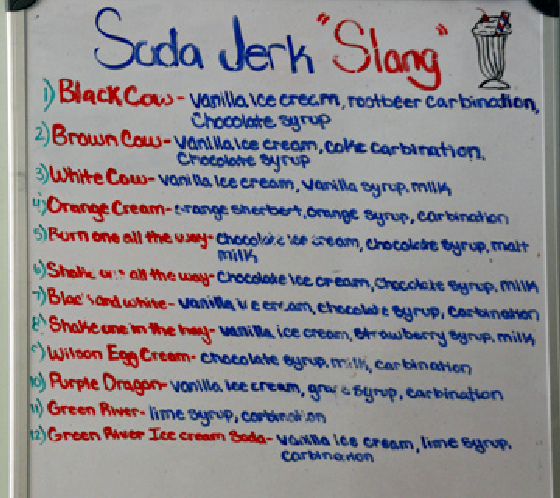 Soda Jerk "Slang"
1) Black Cow- vanilla ice cream, rootbeer carbination,
Chocolate syrup
2) Brown Cow- vanilla ice cream, coke carbination.
Chocolate syrup
3) White Cow- vanilla ice cream, vanilla syrup. milk
4) Orange Cream- orange sherbert, orange syrup, carbination
5) Burn one all the way- chocolate ice cream, chocolate syrup, malt
milk
6) Shake one all the way- chocolate ice cream, chocolate syrup, milk
7) Black and white- vanilla ice cream, chocolate syrup, carbination
8) Shake one in the hay- vanilla ice cream, strawberry syrup, milk
9) Wilson Egg Cream- chocolate syrup, milk, carbination
10) Purple Dragon- vanilla ice cream, grape syrup, carbination
11) Green River- lime syrup, carbination
12) Green River Ice cream Soda- vanilla ice cream, lime syrup.
carbination